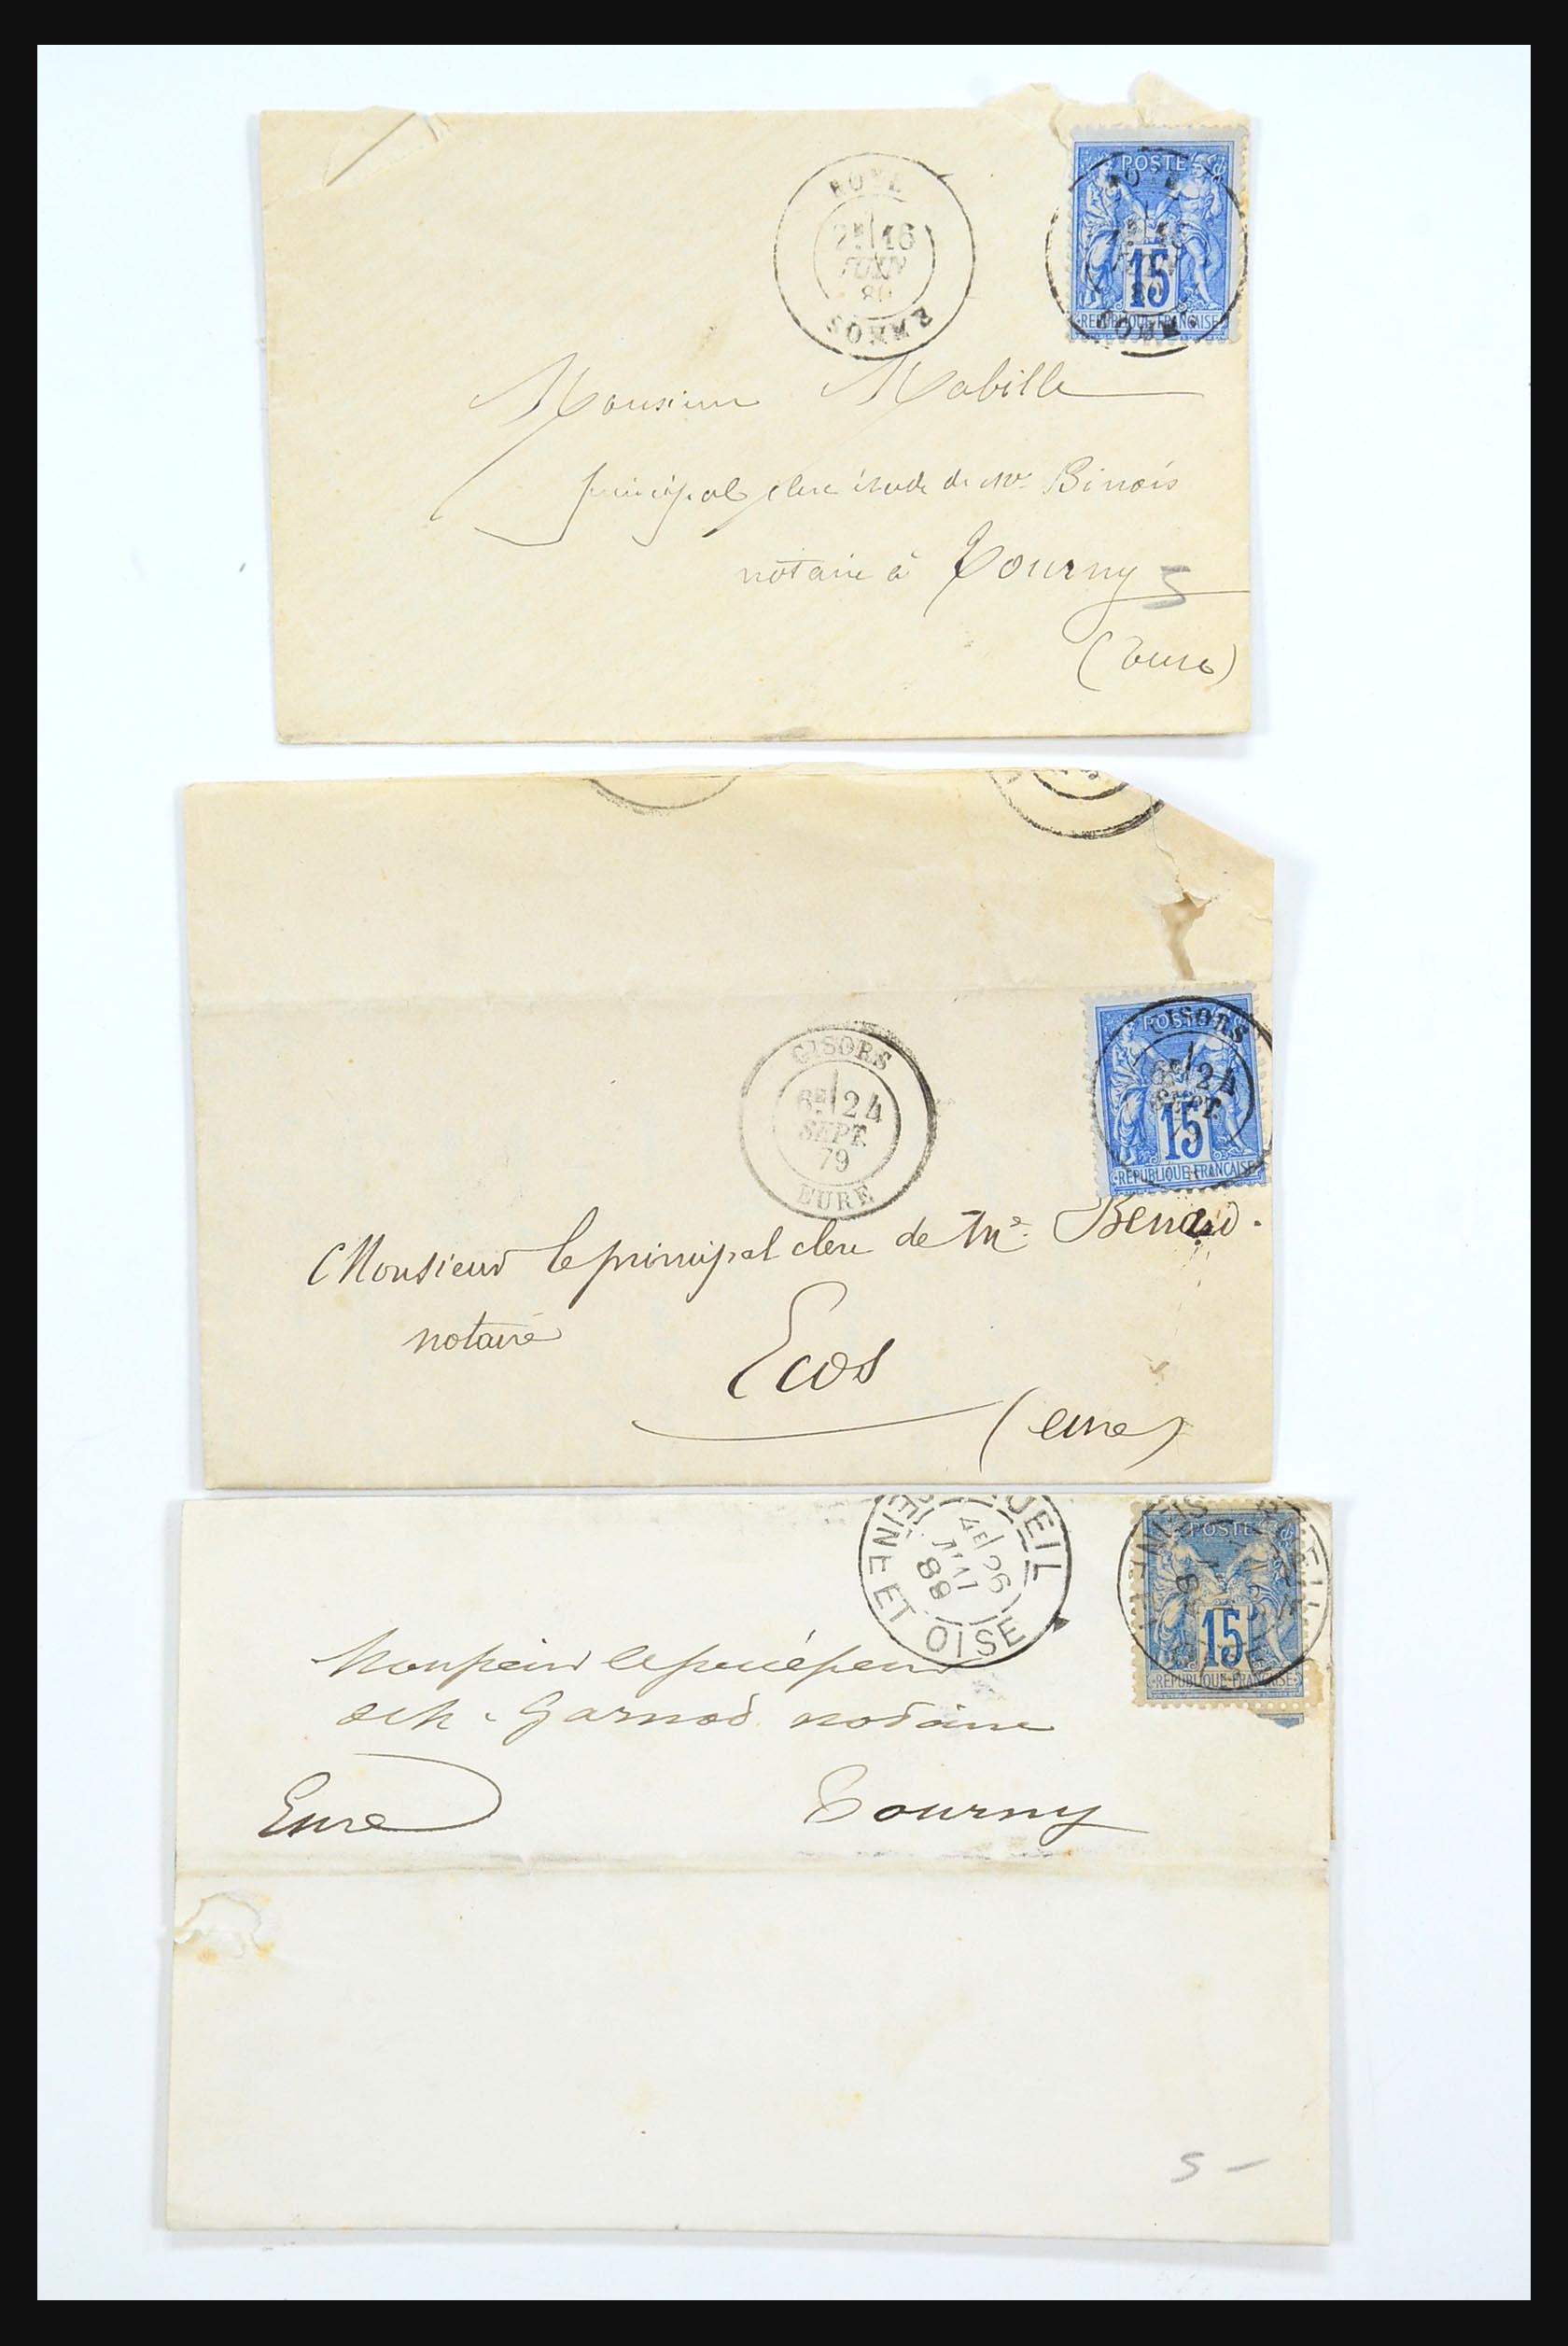 ROYE
2E 16
JUIN
80
SOMME
POSTE
15
REPUBLIQUE FRANCAISE
Monsieur Mabille
principal clerc étude de Me Binois
notaire à Tourny
5
(Eure)
GISORS
6E 24
SEPT.
79
EURE
POSTE
GISORS
6E 24
SEPT.
15
REPUBLIQUE FRANCAISE
Monsieur le principal clerc de Me Benard.
notaire
Ecos
(eure)
UEIL
4E 26
MAI
88
SEINE ET OISE
POSTE
15
REPUBLIQUE FRANCAISE
Garnod notaire
Eure Tourny
5 -